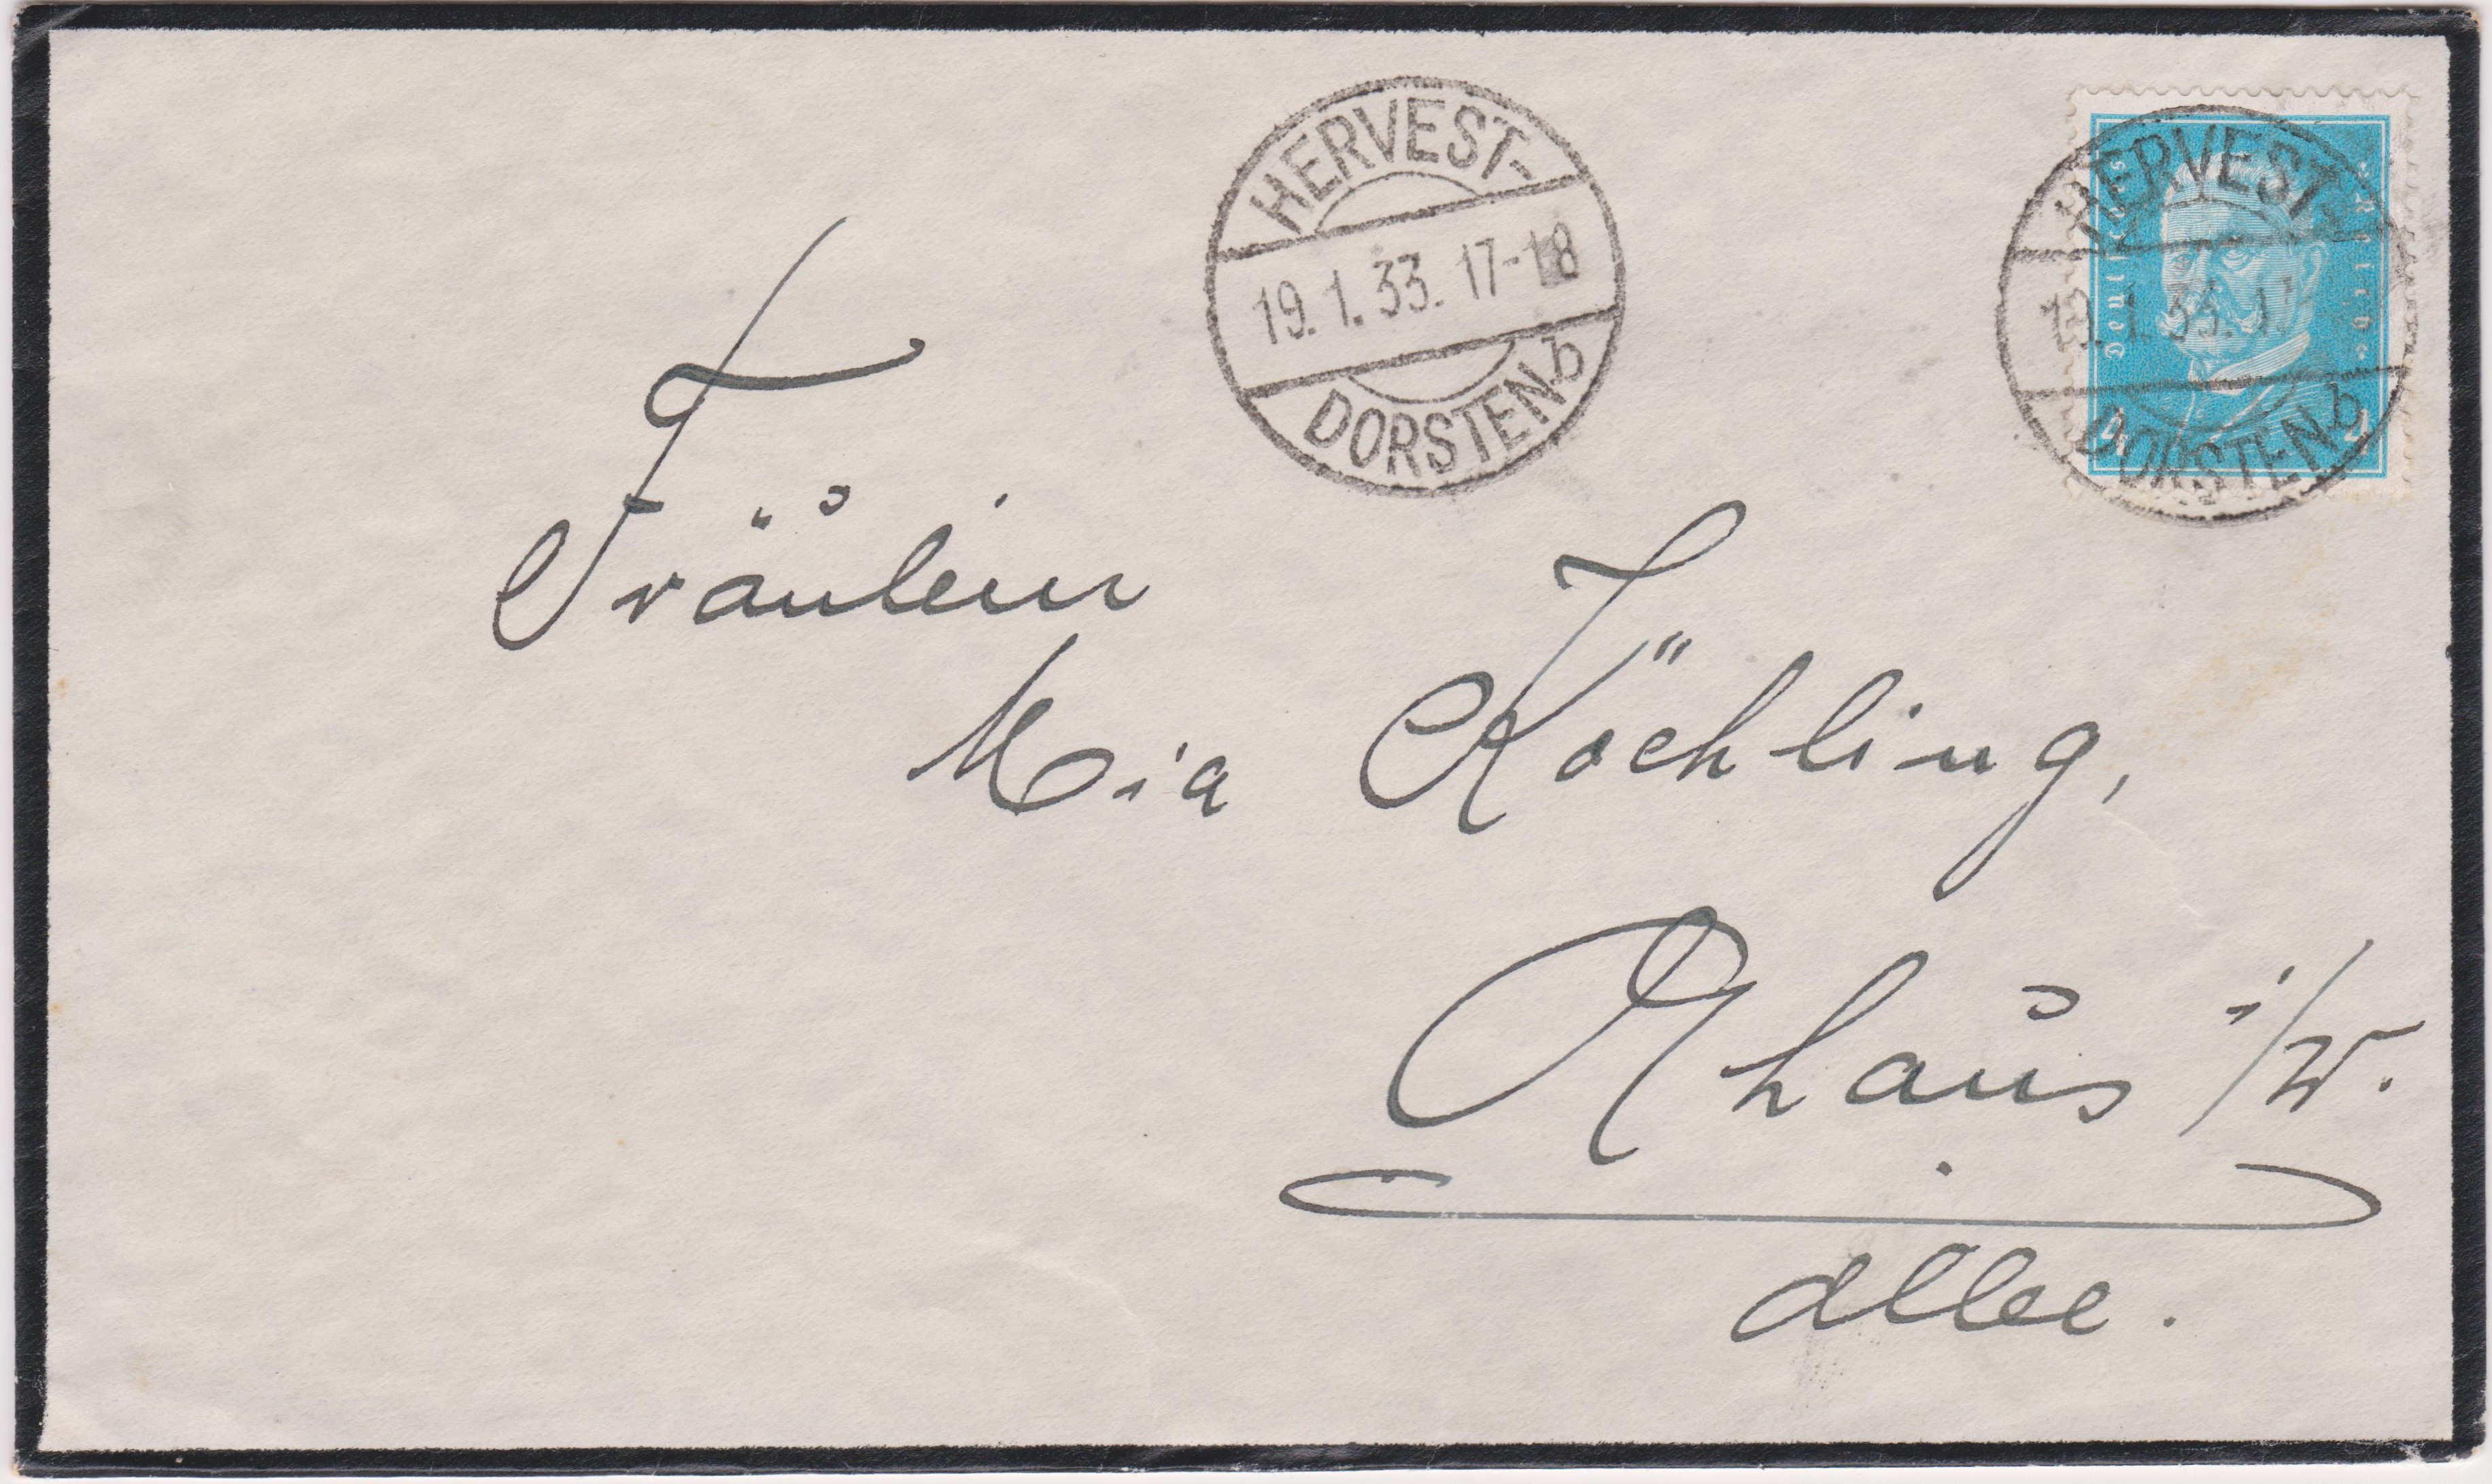 HERVEST-
19.1.33.17-18
DORSTEN b
HERVEST-
19.1.33.17
DORSTEN b
Deutsches
Reich
Fräulein
Mia Köchling,
Ahaus i/W.
Allee.